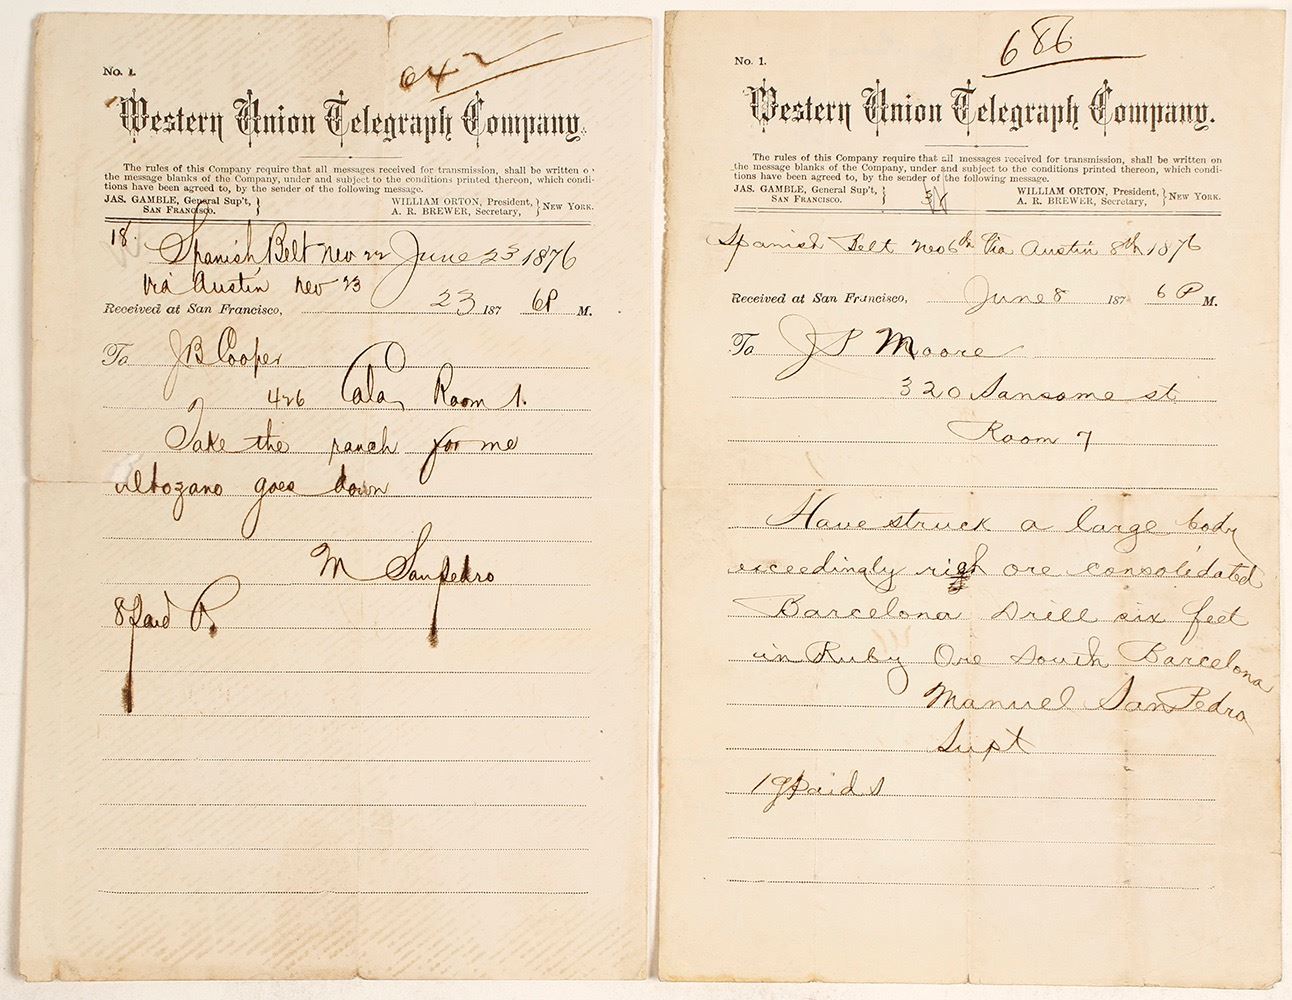 642
No. 1.
Western Union Telegraph Company.
The rules of this Company require that all messages received for transmission, shall be written o
the message blanks of the Company, under and subject to the conditions printed thereon, which condi-
tions have been agreed to, by the sender of the following message.
JAS. GAMBLE, General Sup't, } WILLIAM ORTON, President, } NEW YORK.
SAN FRANCISCO. A. R. BREWER, Secretary,
18. Spanish Belt Nev 22 June 23 1876
Via Austin Nev 23
Received at San Francisco, 23 187 6P M.
To J B Cooper
426 Cala, Room 1.
Take the ranch for me
altozano goes down
M SanPedro
8 Paid R
686
No. 1.
Western Union Telegraph Company.
The rules of this Company require that all messages received for transmission, shall be written on
the message blanks of the Company, under and subject to the conditions printed thereon, which condi-
tions have been agreed to, by the sender of the following message.
JAS. GAMBLE, General Sup't, } WILLIAM ORTON, President, } NEW YORK.
SAN FRANCISCO. A. R. BREWER, Secretary,
Spanish Belt Nev 6th Via Austin 8th 1876
Received at San Francisco, June 8 187 6 P M.
To J P Moore
320 Sansome st
Room 7
Have struck a large body
exceedingly rich ore consolidated
Barcelona Drill six feet
in Ruby Ore South Barcelona
Manuel San Pedro
Supt
19 Paid S